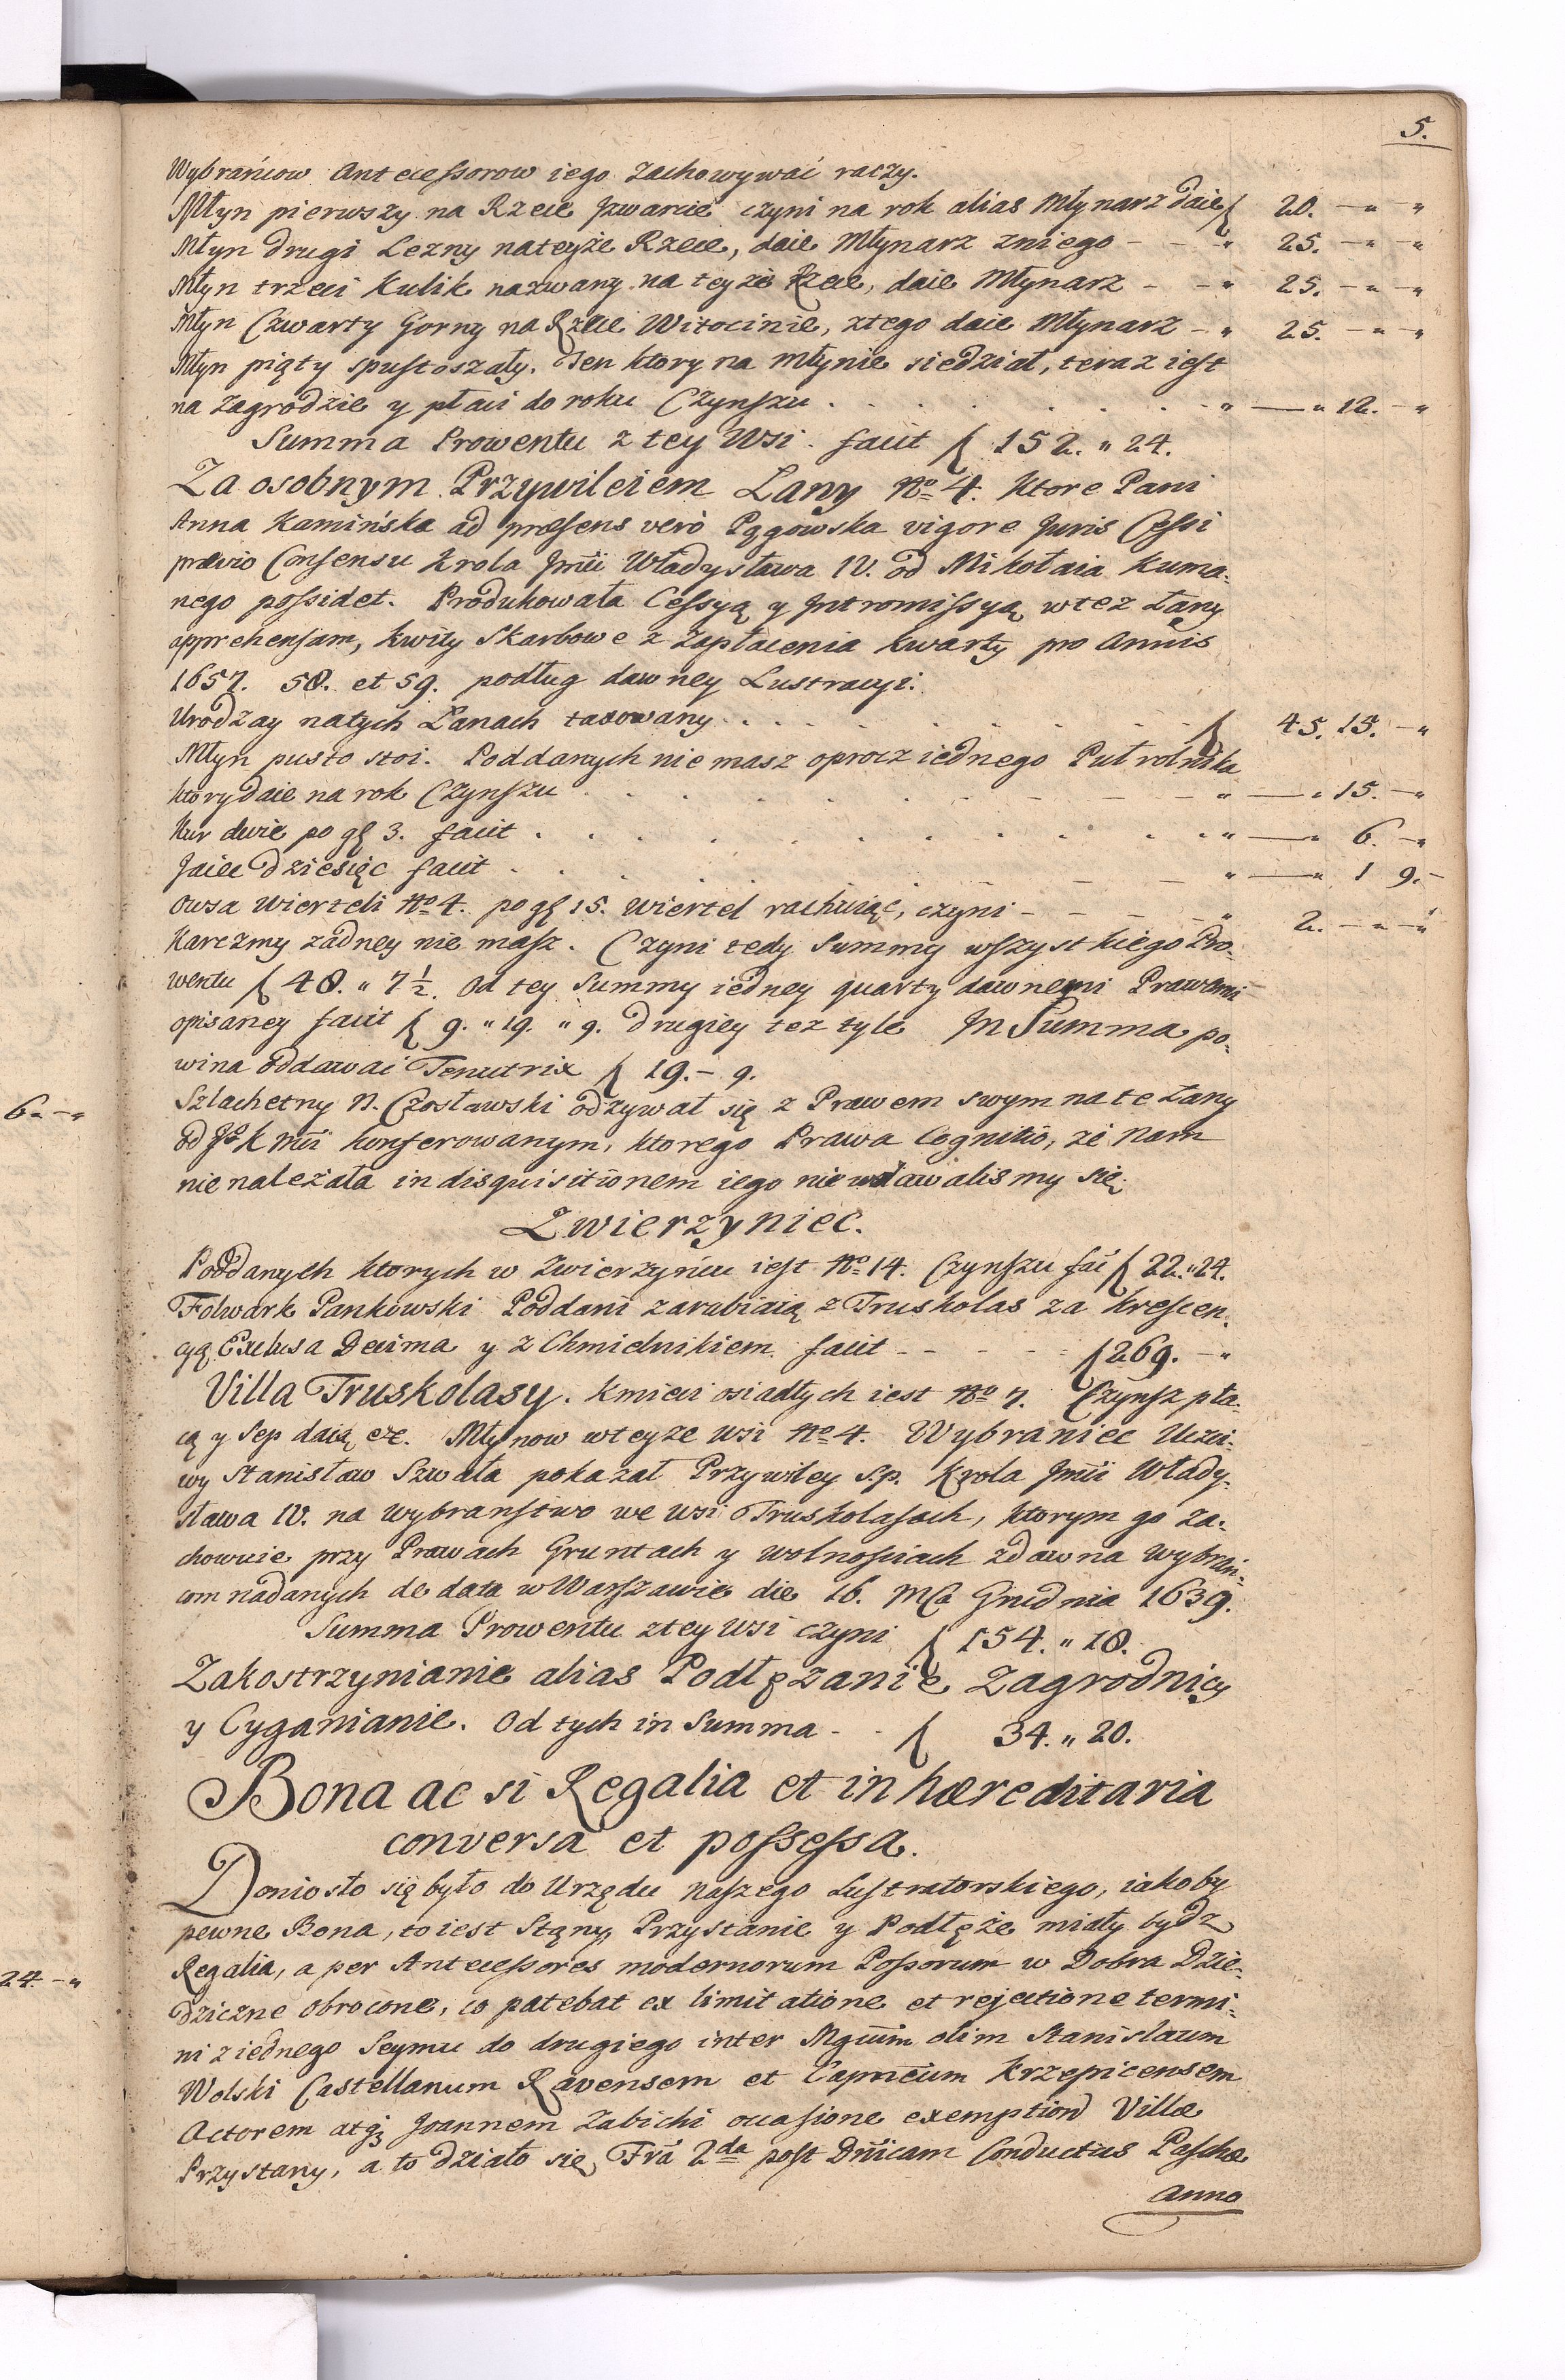 5.
Wybrańcow Antecessorow iego zachowywać raczy.
Młyn pierwszy na Rzece Jzwarcie czyni na rok alias Młynarz daie ƒ 20. — „ — „
Młyn drugi Lezny na teyże Rzece, daie Młynarz z niego - - „ 25. — „ — „
Młyn trzeci Kulik nazwany na teyże Rzece, daie Młynarz - - „ 25. — „ — „
Młyn Czwarty Gorny na Rzece Witocinie, z tego daie Młynarz - „ 25. — „ — „
Młyn piąty spustoszały. Ten ktory na młynie siedział, teraz iest
na Zagrodzie y płaci do roku Czynszu . . . . . „ — „ 12. — „
Summa Prowentu z tey Wsi facit ƒ 152. „ 24.
Za osobnym Przywileiem Łany No 4. ktore Pani
Anna Kamińska ad præsens verò Pągowska vigore Juris Cessi
prævio Consensu Krola Jmci Władysława IV. od Mikołaia Kuma:
nego possidet. Produkowała Cessyą y Jntromissyą w też Łany
apprehensam, kwity Skarbowe z Zapłacenia kwarty pro Annis
1657. 58. et 59. podług dawney Lustracyi.
Urodzay na tych Łanach taxowany . . . . . ƒ 45. 15. — „
Młyn pusto stoi. Poddanych nie masz oprocz iednego Puł rolnika
ktory daie na rok Czynszu . . . . . „ — „ 15. — „
Kur dwie po gł 3. facit . . . . . „ — „ 6. — „
Jaiec dziesięć facit . . . . . „ — „ 1 9. -
Owsa Wierteli No 4. po gł 15. Wiertel rachuiąc, czyni - - - - „ 2. — „ — „
Karczmy żadney nie masz. Czyni tedy Summy wszystkiego Pro:
wentu ƒ 48. „ 7½. Od tey Summy iedney quarty dawnemi Prawami
opisaney facit ƒ 9. „ 19. „ 9. drugiey też tyle Jn Summa po:
wina oddawać Tenutrix ƒ 19. - 9.
Szlachetny N. Czosławski odzywał się z Prawem swym na te Łany
od JoK Mci konferowanym, ktorego Prawa Cognitio, że Nam
nie należała in disquisitionem iego nie wdawalismy się.
Zwierzyniec.
Poddanych ktorych w Zwierzyńcu iest No 14. Czynszu fac ƒ 22. „ 24.
Folwark Pankowski Poddani zarabiaią z Truskolas za krescen:
cyą Exclusa Decima y z Chmielnikiem facit - - - - ƒ 269. — „
Villa Truskolasy. Kmieci osiadłych iest No 7. Czynsz pła:
cą y Sep daią etc. Młynow w teyże Wsi No 4. Wybraniec Uczci:
wy Stanisław Szwała pokazał Przywiley S.p. Krola Jmci Włady:
sława IV. na wybraństwo we Wsi Truskolasach, ktorym go za:
chowuie przy Prawach Gruntach y wolnościach zdawna wybrań:
com nadanych de data w Warszawie die 16. Mca Grudnia 1639.
Summa Prowentu z tey Wsi czyni ƒ 154. „ 18.
Zakostrzynianie alias Podłężanie Zagrodnicy
y Cyganianie. Od tych in Summa - - ƒ 34. „ 20.
Bona ac si Regalia et in hæreditaria
conversa et possessa.
Doniosło się było do Urzędu naszego Lustratorskiego, iakoby
pewne Bona, to iest Stąny, Przystanie y Podłęże miały bydź
Regalia, a per Antecessores modernorum Possorum w Dobra Dzie:
dziczne obrocone, co patebat ex limitatione et rejectione termi:
ni z iednego Seymu do drugiego inter Mgcum olim Stanislaum
Wolski Castellanum Ravensem et Capneum Krzepicensem
Actorem atqꝫ Joannem Zabicki occasione exemption Villæ
Przystany, a to działo się Fra 2da post Dnicam Conductus Paschæ
Anno
6. — „
24. — „